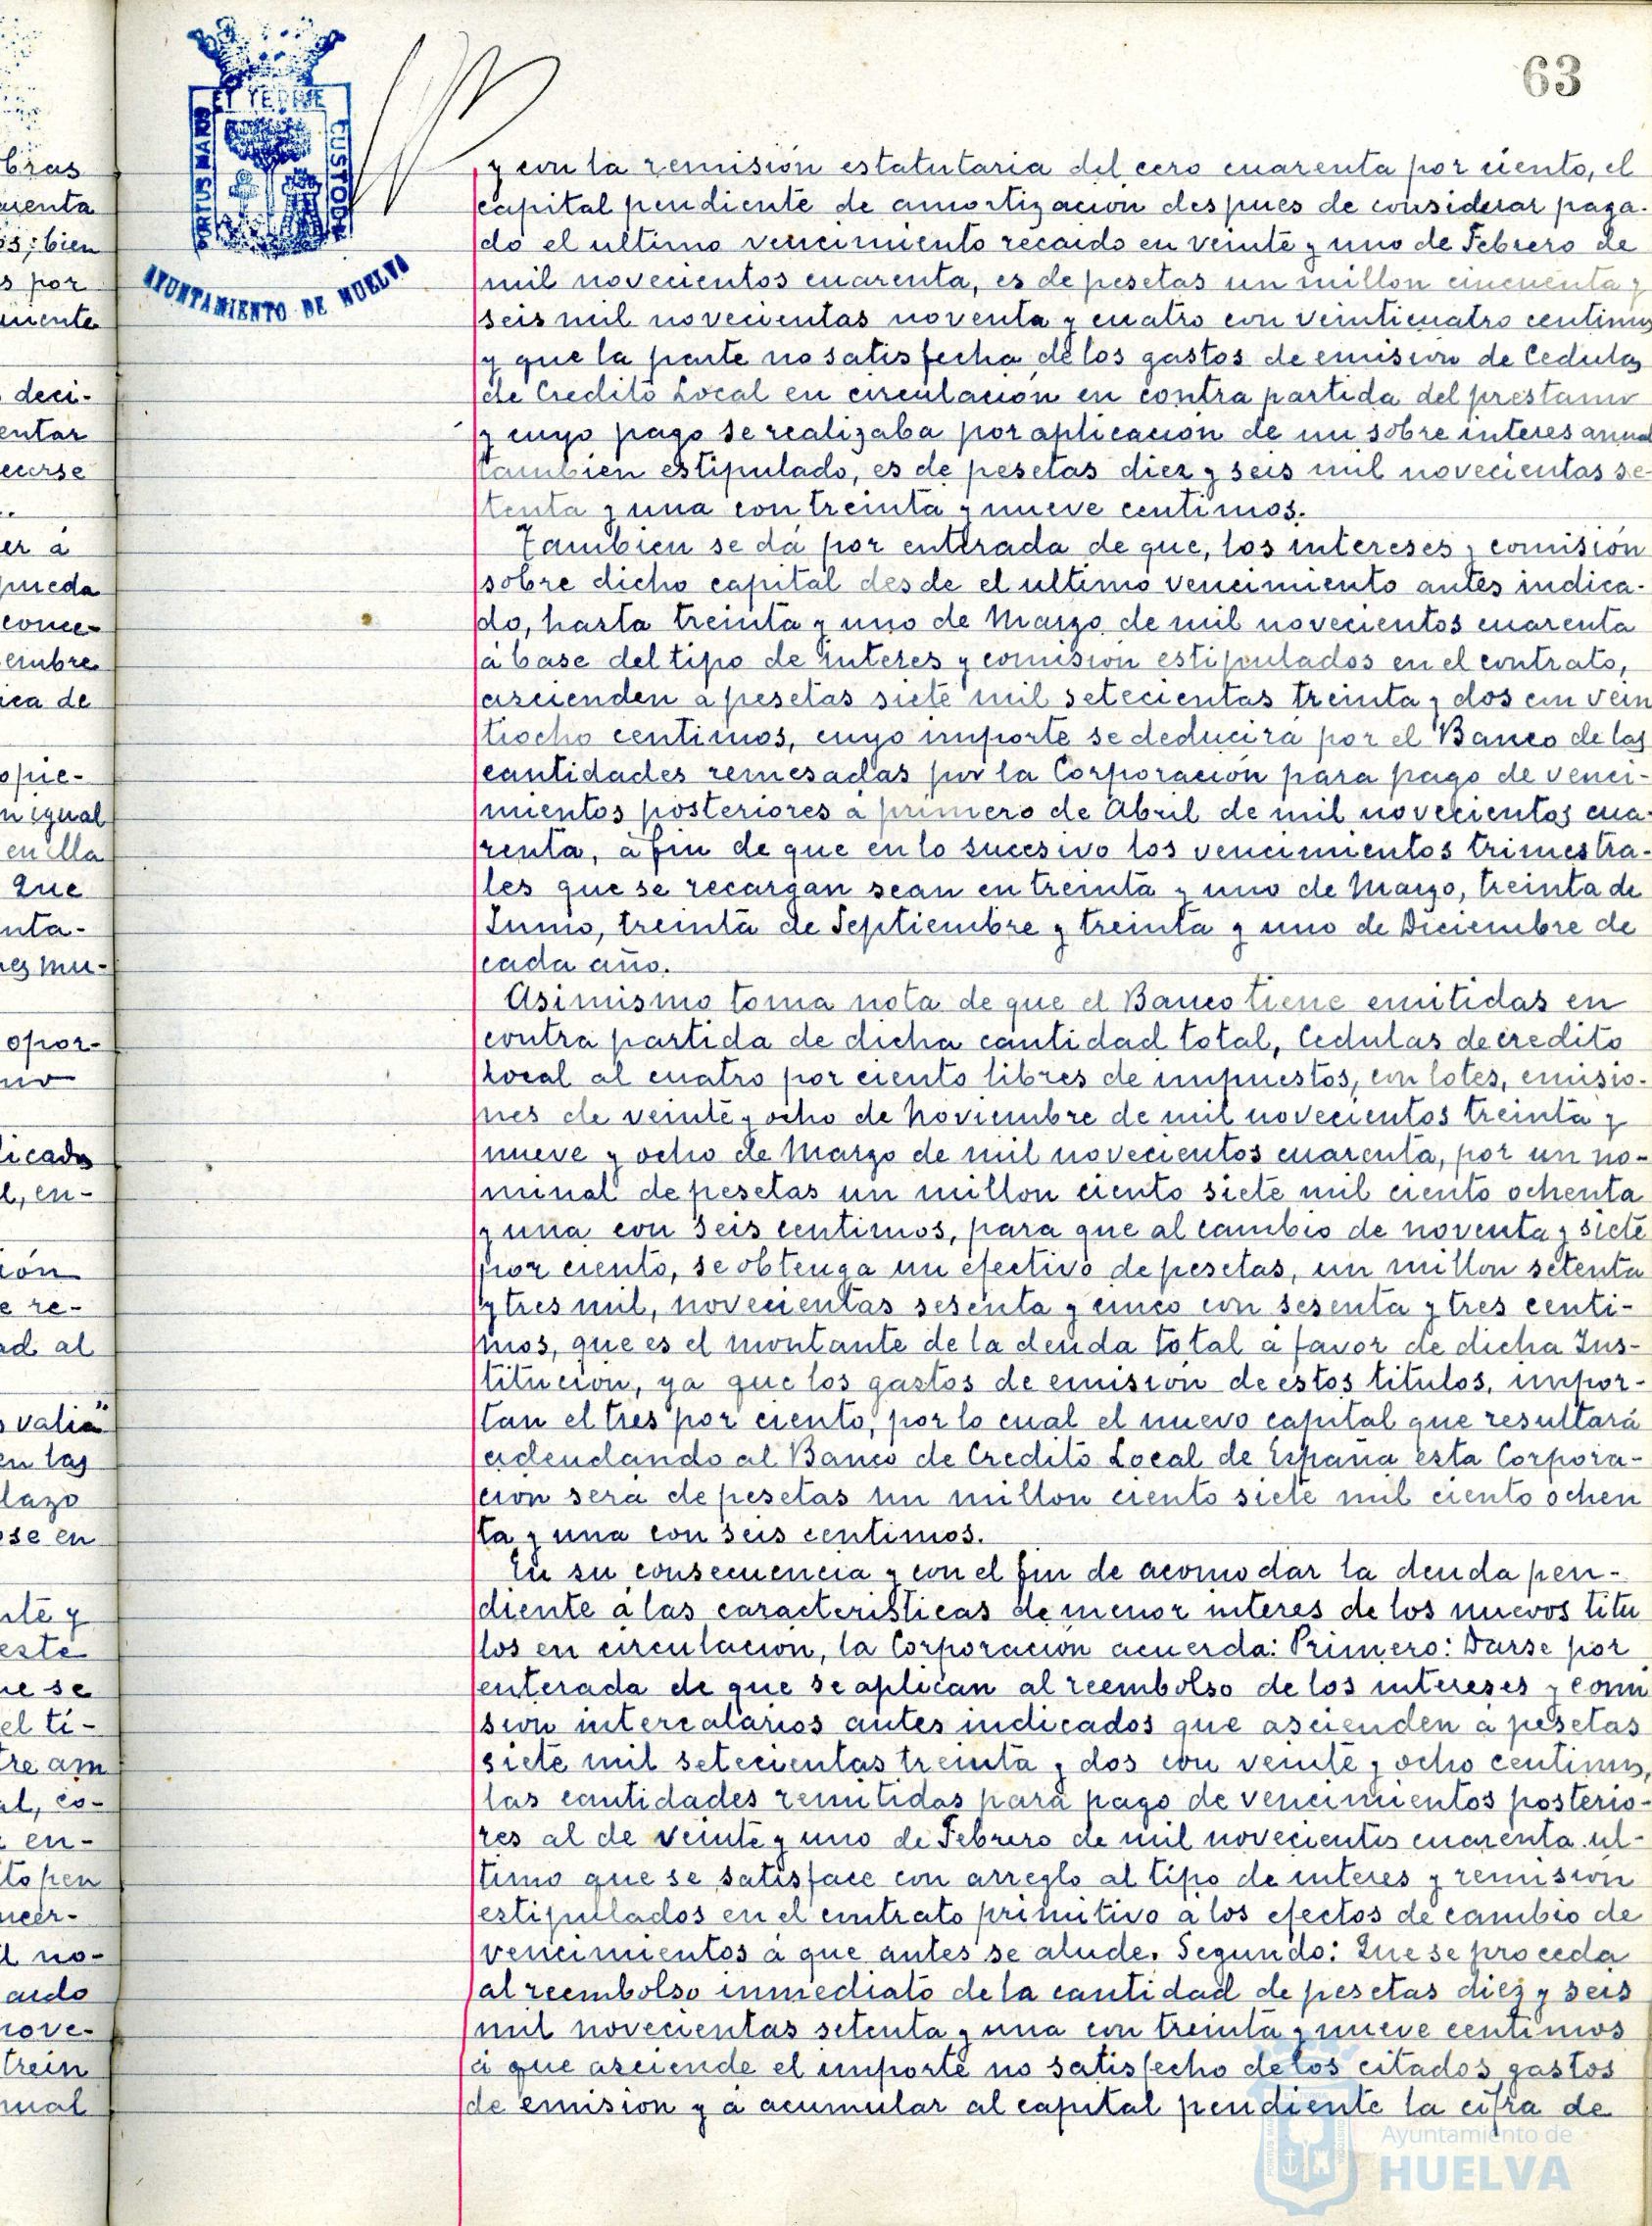 63
PORTUS MARIS
ET TERRE
CUSTODIA
AYUNTAMIENTO DE HUELVA
y con la remisión estatutaria del cero cuarenta por ciento, el
capital pendiente de amortización despues de considerar paga-
do el ultimo vencimiento recaido en veinte y uno de Febrero de
mil novecientos cuarenta, es de pesetas un millon cincuenta y
seis mil novecientas noventa y cuatro con veinticuatro centimos
y que la parte no satisfecha de los gastos de emision de Cedulas
de Credito Local en circulación en contra partida del prestamo
y cuyo pago se realizaba por aplicación de un sobre interes anual
tambien estipulado, es de pesetas diez y seis mil novecientas se-
tenta y una con treinta y nueve centimos.
Tambien se dá por enterada de que, los intereses y comisión
sobre dicho capital desde el ultimo vencimiento antes indica-
do, hasta treinta y uno de Marzo de mil novecientos cuarenta
á base del tipo de interes y comision estipulados en el contrato,
ascienden a pesetas siete mil setecientas treinta y dos con vein
tiocho centimos, cuyo importe se deducirá por el Banco de las
cantidades remesadas por la Corporación para pago de venci-
mientos posteriores á primero de Abril de mil novecientos cua-
renta, á fin de que en lo sucesivo los vencimientos trimestra-
les que se recargan sean en treinta y uno de Marzo, treinta de
Junio, treinta de Septiembre y treinta y uno de Diciembre de
cada año.
Asimismo toma nota de que el Banco tiene emitidas en
contra partida de dicha cantidad total, Cedulas de credito
Local al cuatro por ciento libres de impuestos, con lotes, emisio-
nes de veinte y ocho de Noviembre de mil novecientos treinta y
nueve y ocho de Marzo de mil novecientos cuarenta, por un no-
minal de pesetas un millon ciento siete mil ciento ochenta
y una con seis centimos, para que al cambio de noventa y siete
por ciento, se obtenga un efectivo de pesetas, un millon setenta
y tres mil, novecientas sesenta y cinco con sesenta y tres centi-
mos, que es el montante de la deuda total á favor de dicha Ins-
titucion, ya que los gastos de emisión de estos titulos, impor-
tan el tres por ciento, por lo cual el nuevo capital que resultará
adeudando al Banco de Credito Local de España esta Corpora-
cion será de pesetas un millon ciento siete mil ciento ochen
ta y una con seis centimos.
En su consecuencia y con el fin de acomodar la deuda pen-
diente á las caracteristicas de menor interes de los nuevos titu
los en circulacion, la Corporación acuerda: Primero: Darse por
enterada de que se aplican al reembolso de los intereses y comi
sion intercalarios antes indicados que ascienden á pesetas
siete mil setecientas treinta y dos con veinte y ocho centimos,
las cantidades remitidas para pago de vencimientos posterio-
res al de veinte y uno de Febrero de mil novecientos cuarenta ul-
timo que se satisface con arreglo al tipo de interes y remision
estipulados en el contrato primitivo á los efectos de cambio de
vencimientos á que antes se alude. Segundo: Que se proceda
al reembolso inmediato de la cantidad de pesetas diez y seis
mil novecientas setenta y una con treinta y nueve centimos
á que asciende el importe no satisfecho de los citados gastos
de emision y á acumular al capital pendiente la cifra de
Ayuntamiento de
HUELVA